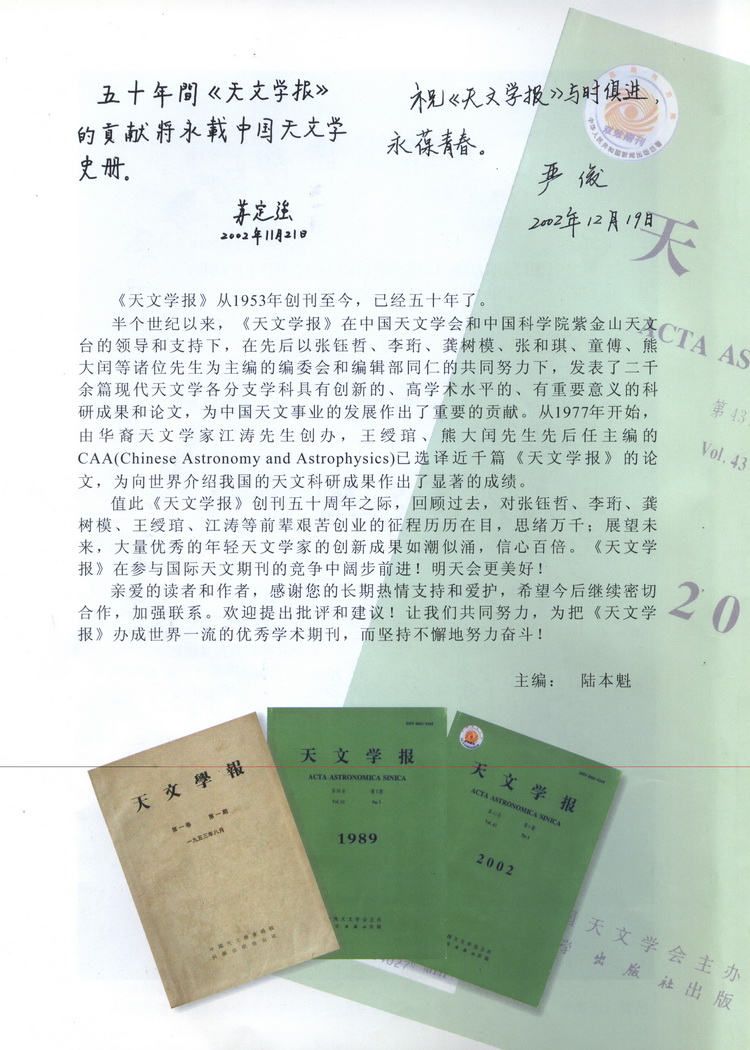 五十年間《天文学报》
的貢献将永載中国天文学
史册。
苏定强
2002年11月21日
祝《天文学报》与时俱进，
永葆青春。
严俊
2002年12月19日
双效期刊
中华人民共和国新闻出版总署
天
ACTA AS
第43
Vol. 43
20
《天文学报》从1953年创刊至今，已经五十年了。
半个世纪以来，《天文学报》在中国天文学会和中国科学院紫金山天文
台的领导和支持下，在先后以张钰哲、李珩、龚树模、张和琪、童傅、熊
大闰等诸位先生为主编的编委会和编辑部同仁的共同努力下，发表了二千
余篇现代天文学各分支学科具有创新的、高学术水平的、有重要意义的科
研成果和论文，为中国天文事业的发展作出了重要的贡献。从1977年开始，
由华裔天文学家江涛先生创办，王绶琯、熊大闰先生先后任主编的
CAA(Chinese Astronomy and Astrophysics)已选译近千篇《天文学报》的论
文，为向世界介绍我国的天文科研成果作出了显著的成绩。
值此《天文学报》创刊五十周年之际，回顾过去，对张钰哲、李珩、龚
树模、王绶琯、江涛等前辈艰苦创业的征程历历在目，思绪万千；展望未
来，大量优秀的年轻天文学家的创新成果如潮似涌，信心百倍。《天文学
报》在参与国际天文期刊的竞争中阔步前进！明天会更美好！
亲爱的读者和作者，感谢您的长期热情支持和爱护，希望今后继续密切
合作，加强联系。欢迎提出批评和建议！让我们共同努力，为把《天文学
报》办成世界一流的优秀学术期刊，而坚持不懈地努力奋斗！
主编： 陆本魁
天文學報
第一卷 第一期
一九五三年八月
天文学报
ACTA ASTRONOMICA SINICA
1989
天文学报
ACTA ASTRONOMICA SINICA
2002
天文学会主办
出版社出版